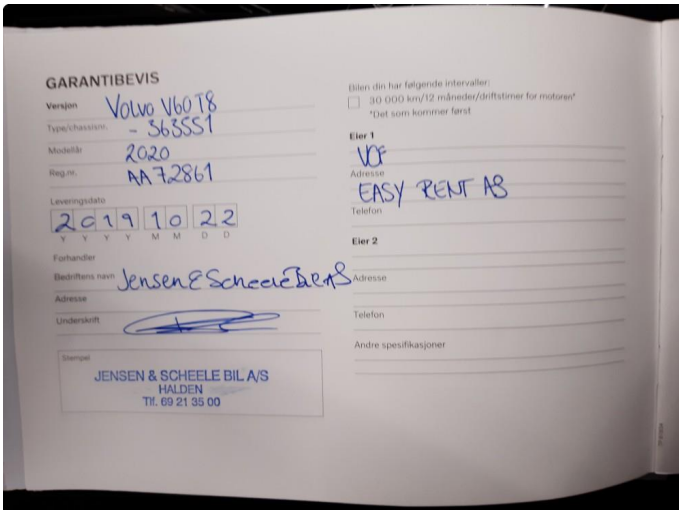 GARANTIBEVIS
Versjon Volvo V60 T8
Type/chassisnr. - 363551
Modellår 2020
Reg.nr. AA 72861
Leveringsdato
2 0 1 9 1 0 2 2
Y Y Y Y M M D D
Forhandler
Bedriftens navn Jensen & Scheele Bil AS
Adresse
Underskrift
Stempel
JENSEN & SCHEELE BIL A/S
HALDEN
Tlf. 69 21 35 00
Bilen din har følgende intervaller:
30 000 km/12 måneder/driftstimer for motoren*
*Det som kommer først
Eier 1
Adresse
EASY RENT AS
Telefon
Eier 2
Adresse
Telefon
Andre spesifikasjoner